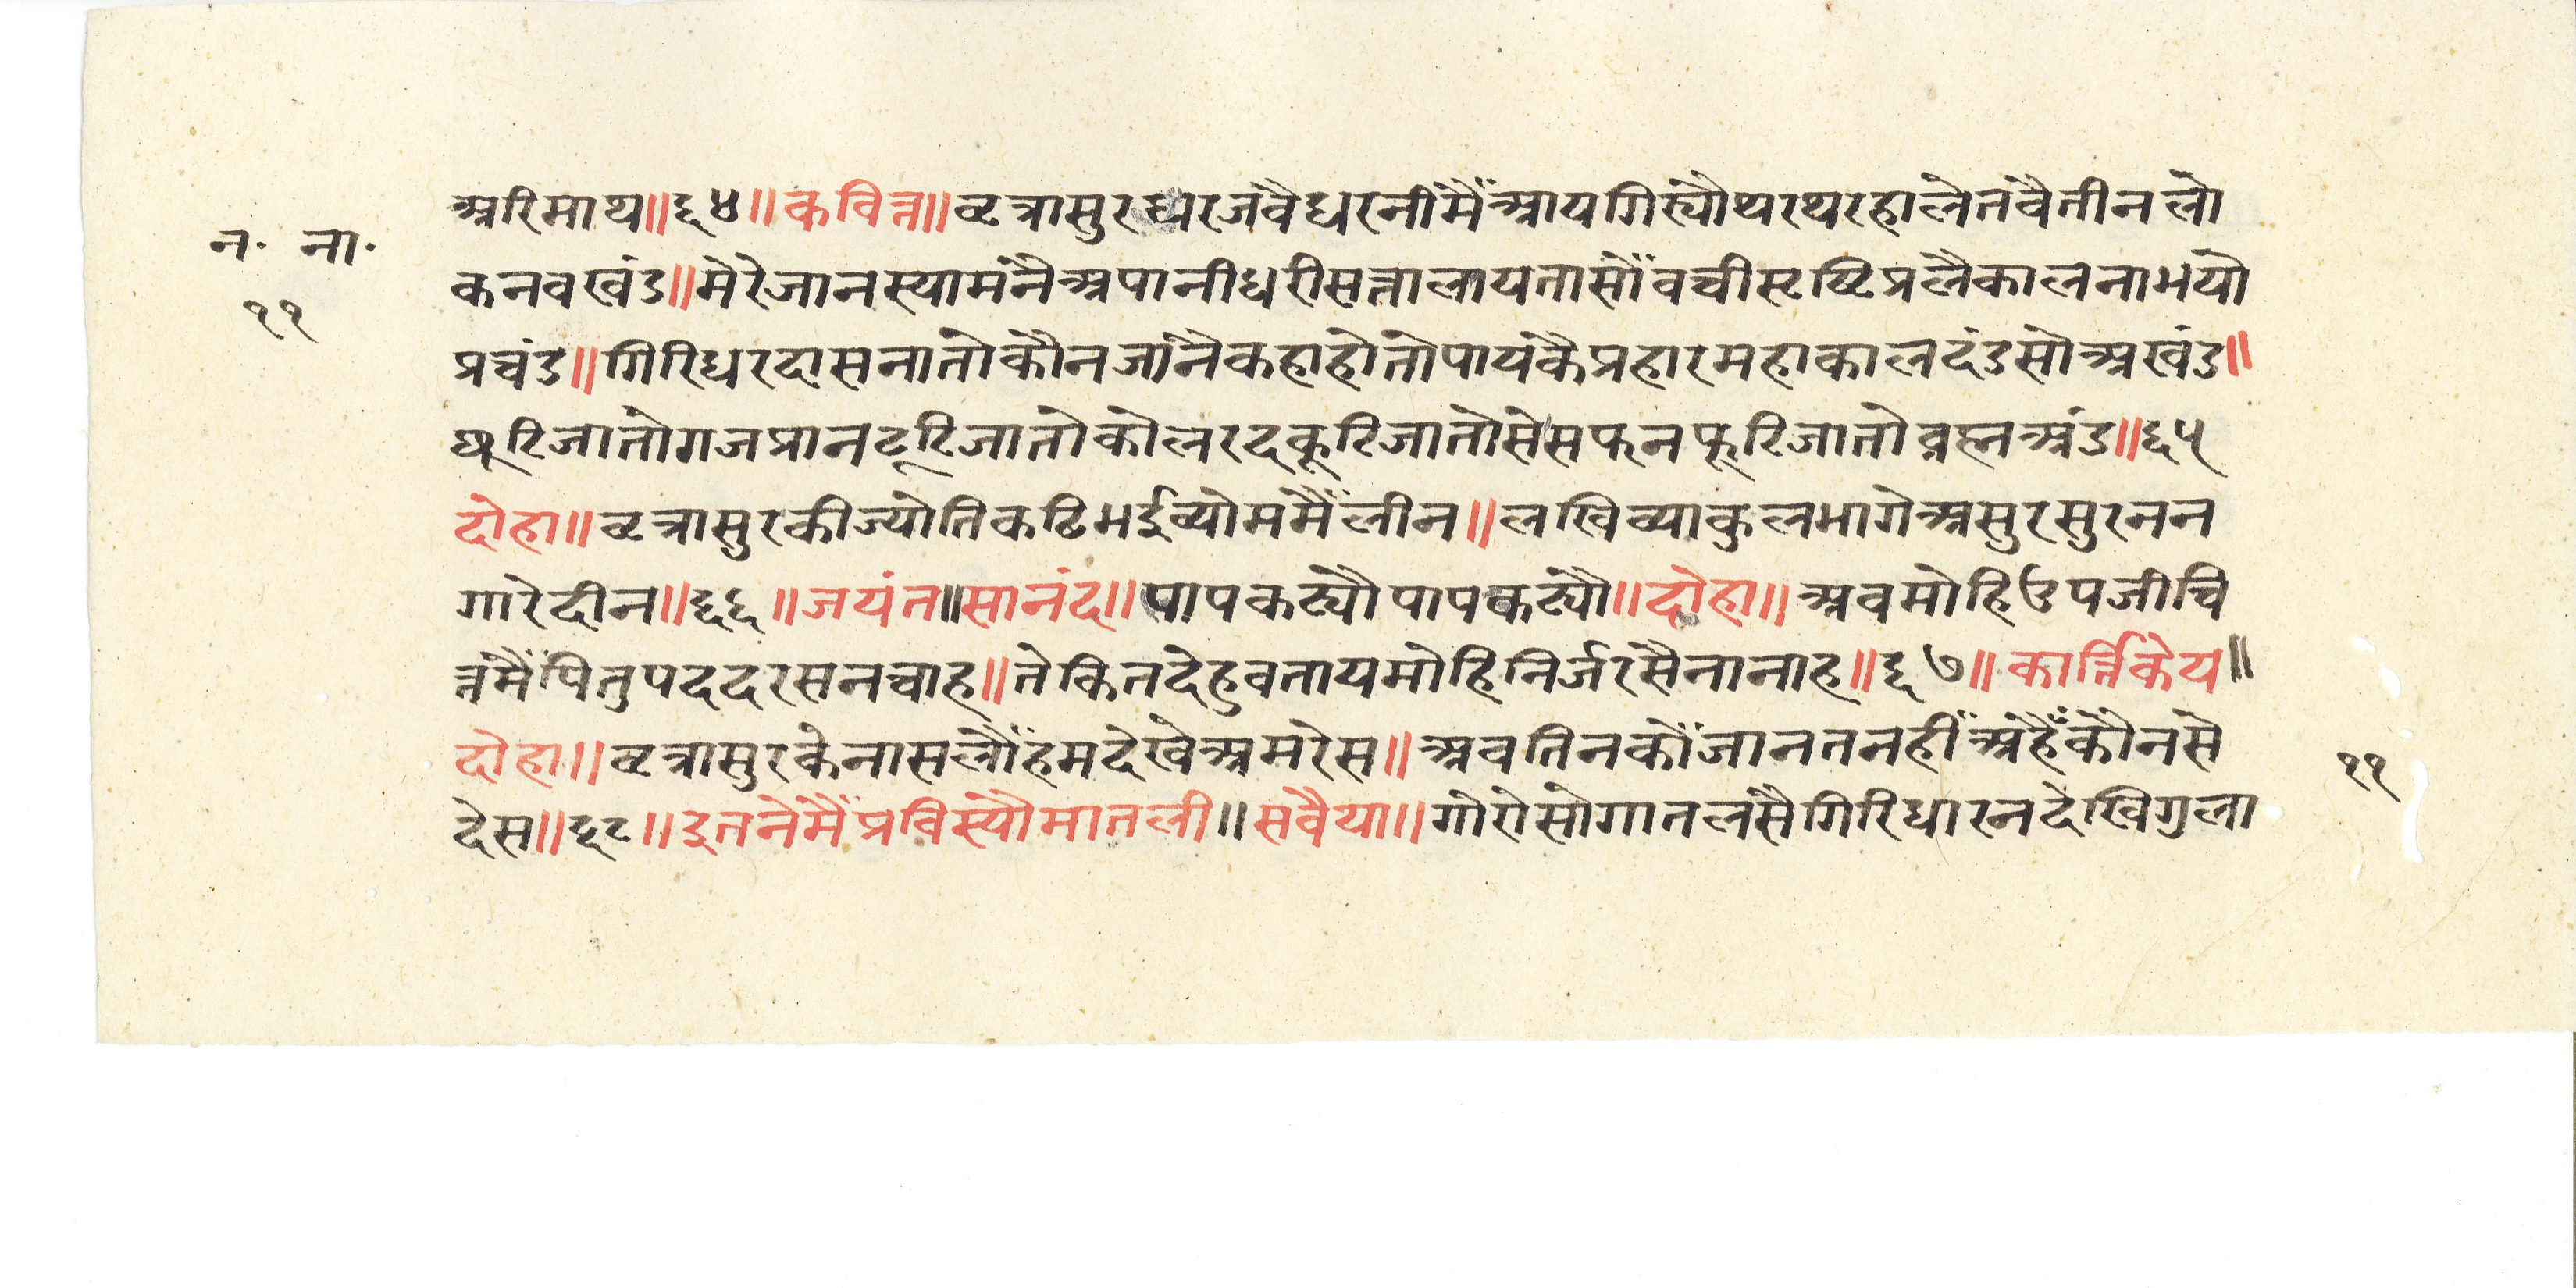 न· ना·
११
अरिमाथ॥६४॥कवित्त॥वृत्रासुरधरजंवैधरनीमैंआयगिर्यौथरथरहालेतंवैतीनलो
कनवखंड॥मेरेजानस्यामंनैअपानीधरीसत्तालायतासौंवचीसृष्टिप्रलैकालनाभयो
प्रचंड॥गिरिधरदासनातोकौनजांनैकहाहोतोपायंकैप्रहारमहाकालदंडसोअखंड॥
घूटिजातोगजप्रानटूटिजातोकोलरदकूटिजातोसेसफनफूटिजातोब्रह्मअंड॥६५
दोहा॥वृत्रासुरकीज्योतिकढिभईव्योममैंलीन॥लखिव्याकुलभागेअसुरसुरनन
गारेदीन॥६६॥जयंत॥सानंद॥पापकट्यौपापकट्यौ॥दोहा॥अवमोहिउपजीचि
त्तमैंपितुपददरसनचाह॥तेकितदेहुवतायमोहिनिर्जरसैनानाह॥६७॥कार्त्तिकेय॥
दोहा॥वृत्रासुरकेनासलौंहमदेखेअमरेस॥अवतिनकौंजानतनहींअहैंकौनसे
देस॥६८॥इतनेमैंप्रविस्यौमातली॥सवैया॥गोरोसोगातलसैगिरिधारनदेखिगुला
११